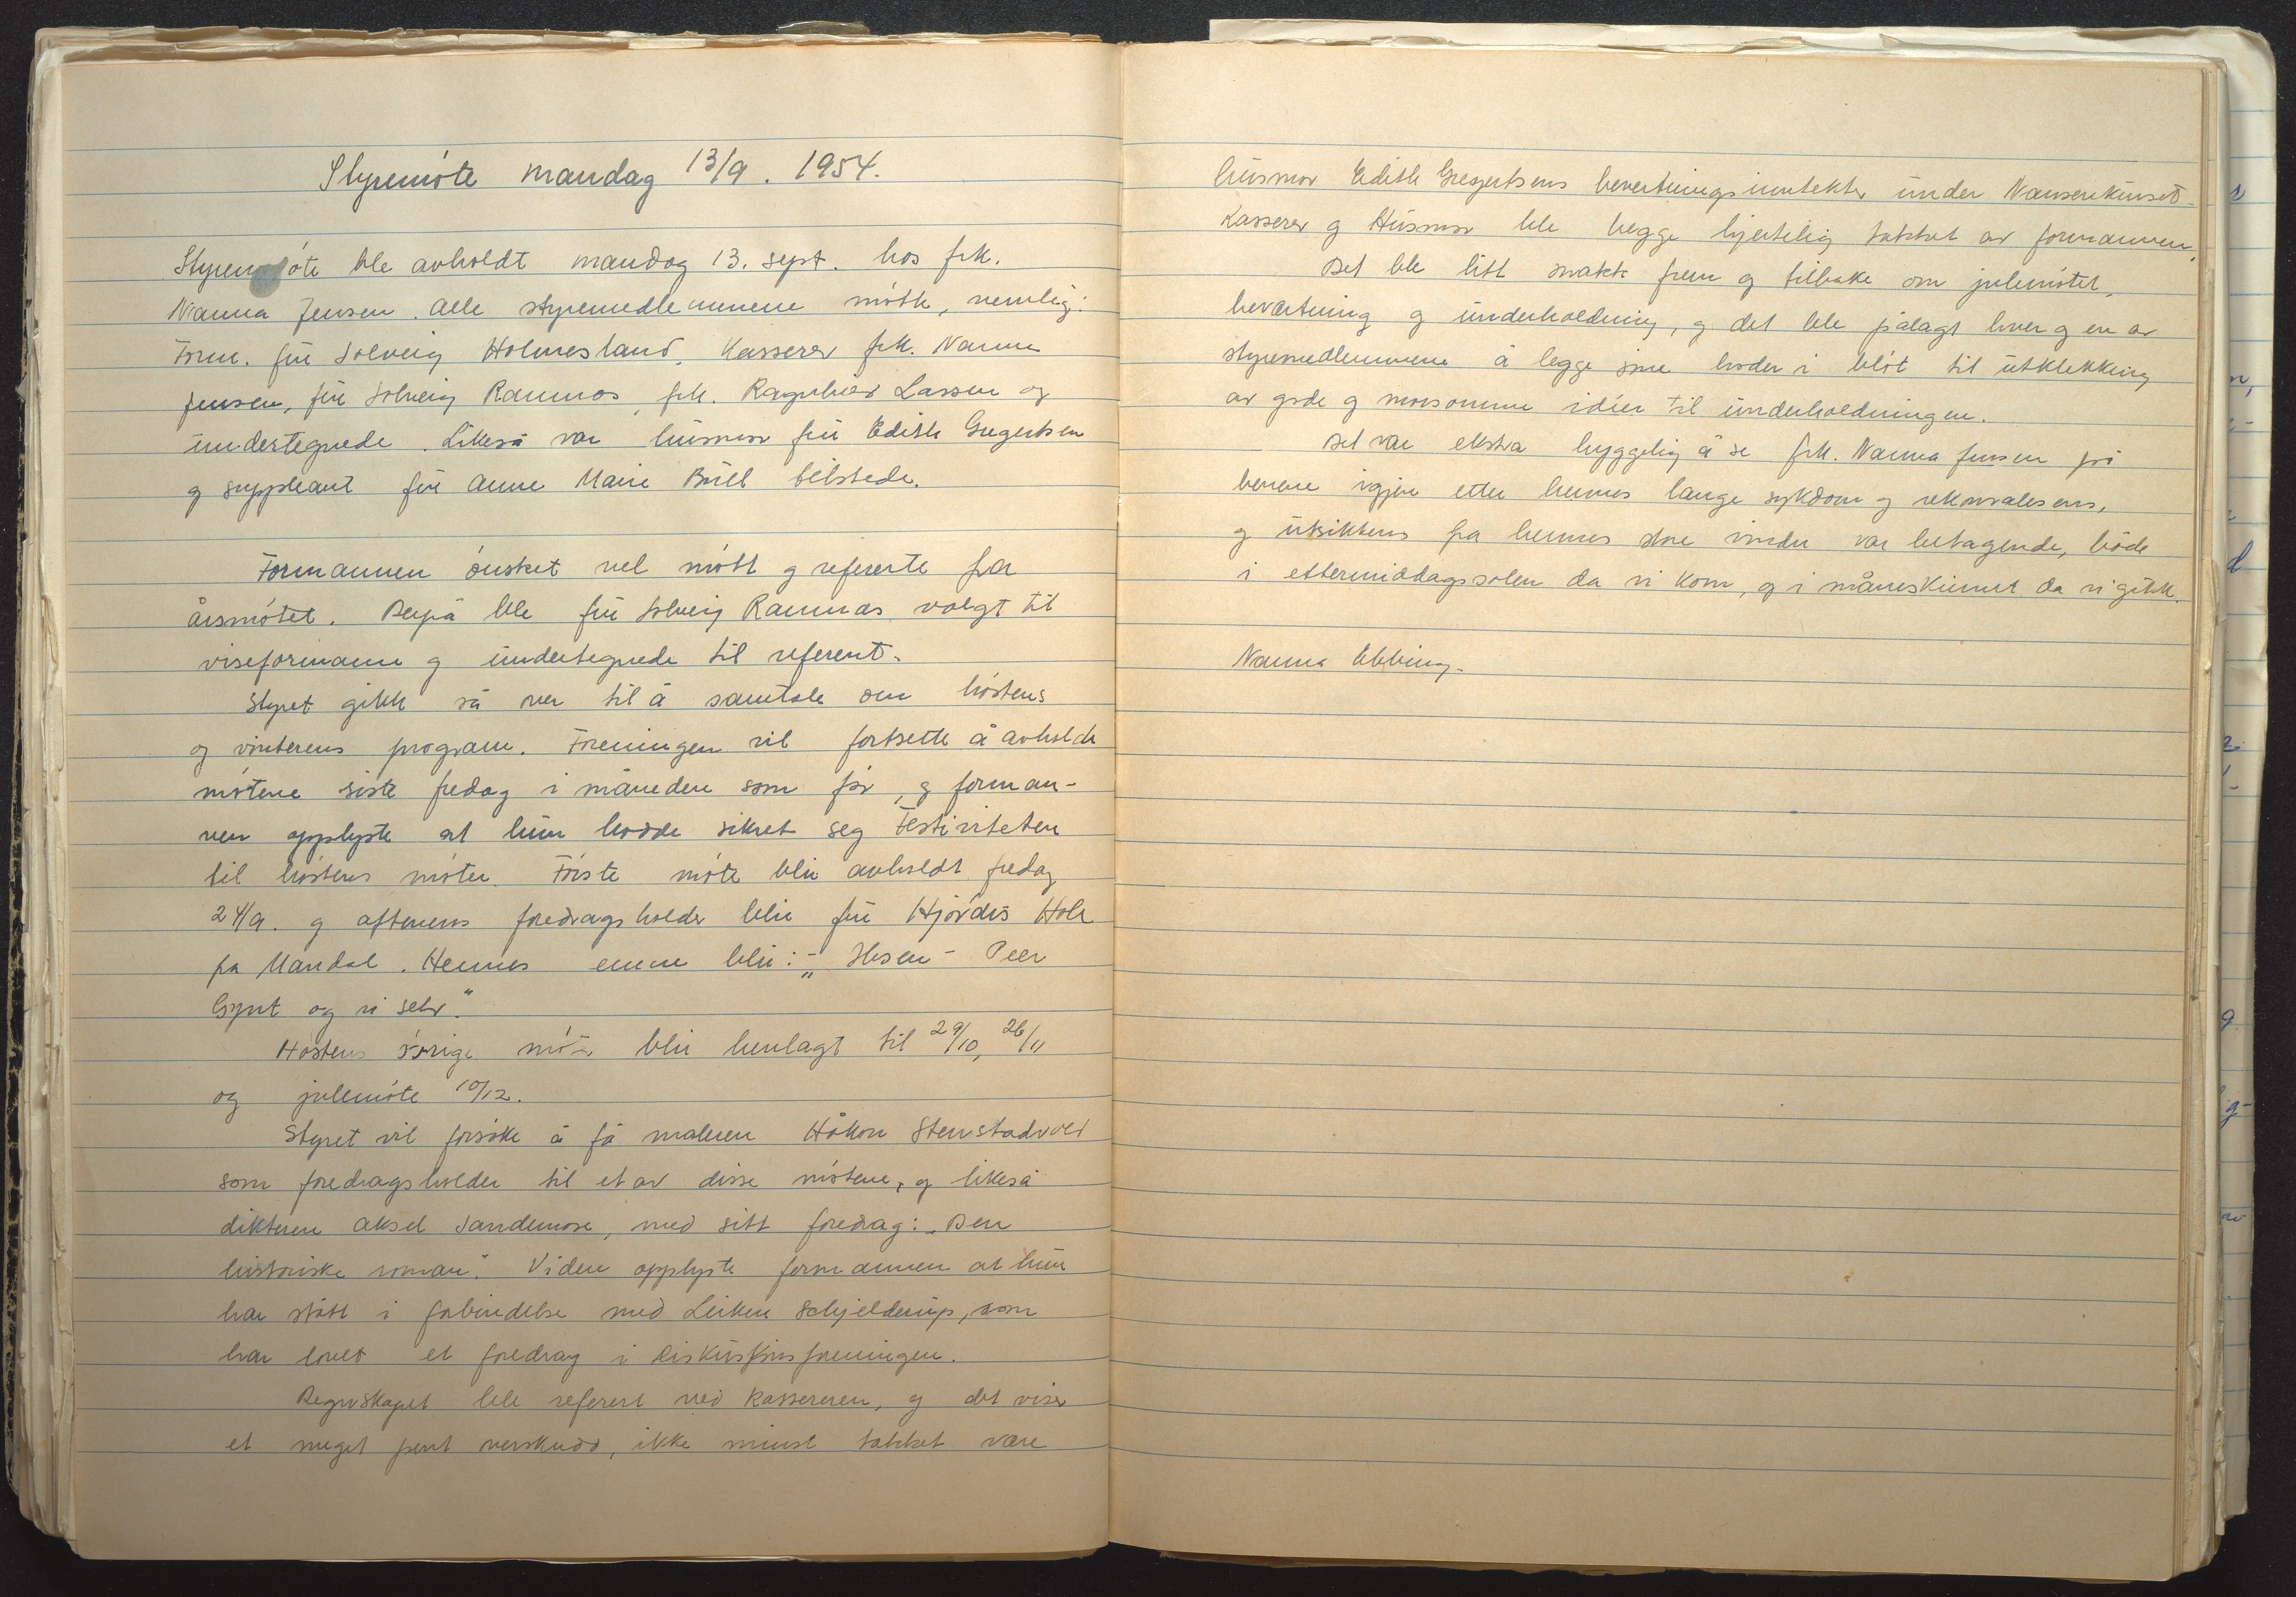 Styremöte mandag 13/9. 1954.
Styremöte ble avholdt mandag 13. sept. hos frk.
Nanna Jensen. Alle styremedlemmene mött, nemlig:
Form. fru Solveig Holmesland, Kasserer frk. Nanna
Jensen, fru Solveig Ramnås, frk. Ragnhild Lassen og
undertegnede. Likeså var husmor fru Edith Gregertsen
og suppleant fru Anne Marie Bull tilstede.
Formannen önsket vel mött og refererte fra
årsmötet. Derpå ble fru Solveig Ramnås valgt til
viseformann og undertegnede til referent.
Styret gikk så over til å samtale om höstens
og vinterens program. Foreningen vil fortsette å avholde
mötene siste fredag i måneden som för, og forman-
nen opplyste at hun hadde sikret seg Festiviteten
til höstens möter. Förste möte blir avholdt fredag
24/9. og aftenens foredragsholder blir fru Hjördis Hole
fra Mandal. Hennes emne blir: - „Ibsen - Peer
Gynt og vi selv."
Höstens övrige möter blir henlagt til 29/10, 26/11
og julemöte 10/12.
Styret vil forsöke å få maleren Håkon Stenstadvold
som foredragsholder til et av disse mötene, og likeså
dikteren Aksel Sandemose, med sitt foredrag: „Den
historiske roman". Videre opplyste formannen at hun
har stått i forbindelse med Leiken Schjelderup, som
har lovet et foredrag i Diskusjonsforeningen.
Regnskapet ble referert ved kassereren, og det viser
et meget pent overskudd, ikke minst takket være
husmor Edith Gregertsens bevertningsinntekter under Nansenkurset.
Kasserer og Husmor ble begge hjertelig takket av formannen.
Det ble litt snakk frem og tilbake om julemötet,
bevertning og underholdning, og det ble pålagt hver og en av
styremedlemmene å legge sine hoder i blöt til utklekking
av gode og morsomme idéer til underholdningen.
Det var ekstra hyggelig å se frk. Nanna Jensen på
benene igjen etter hennes lange sykdom og rekonvalesens,
og utsikten fra hennes store vindu var betagende, både
i ettermiddagssolen da vi kom, og i måneskinnet da vi gikk.
Nanna Ebbing.